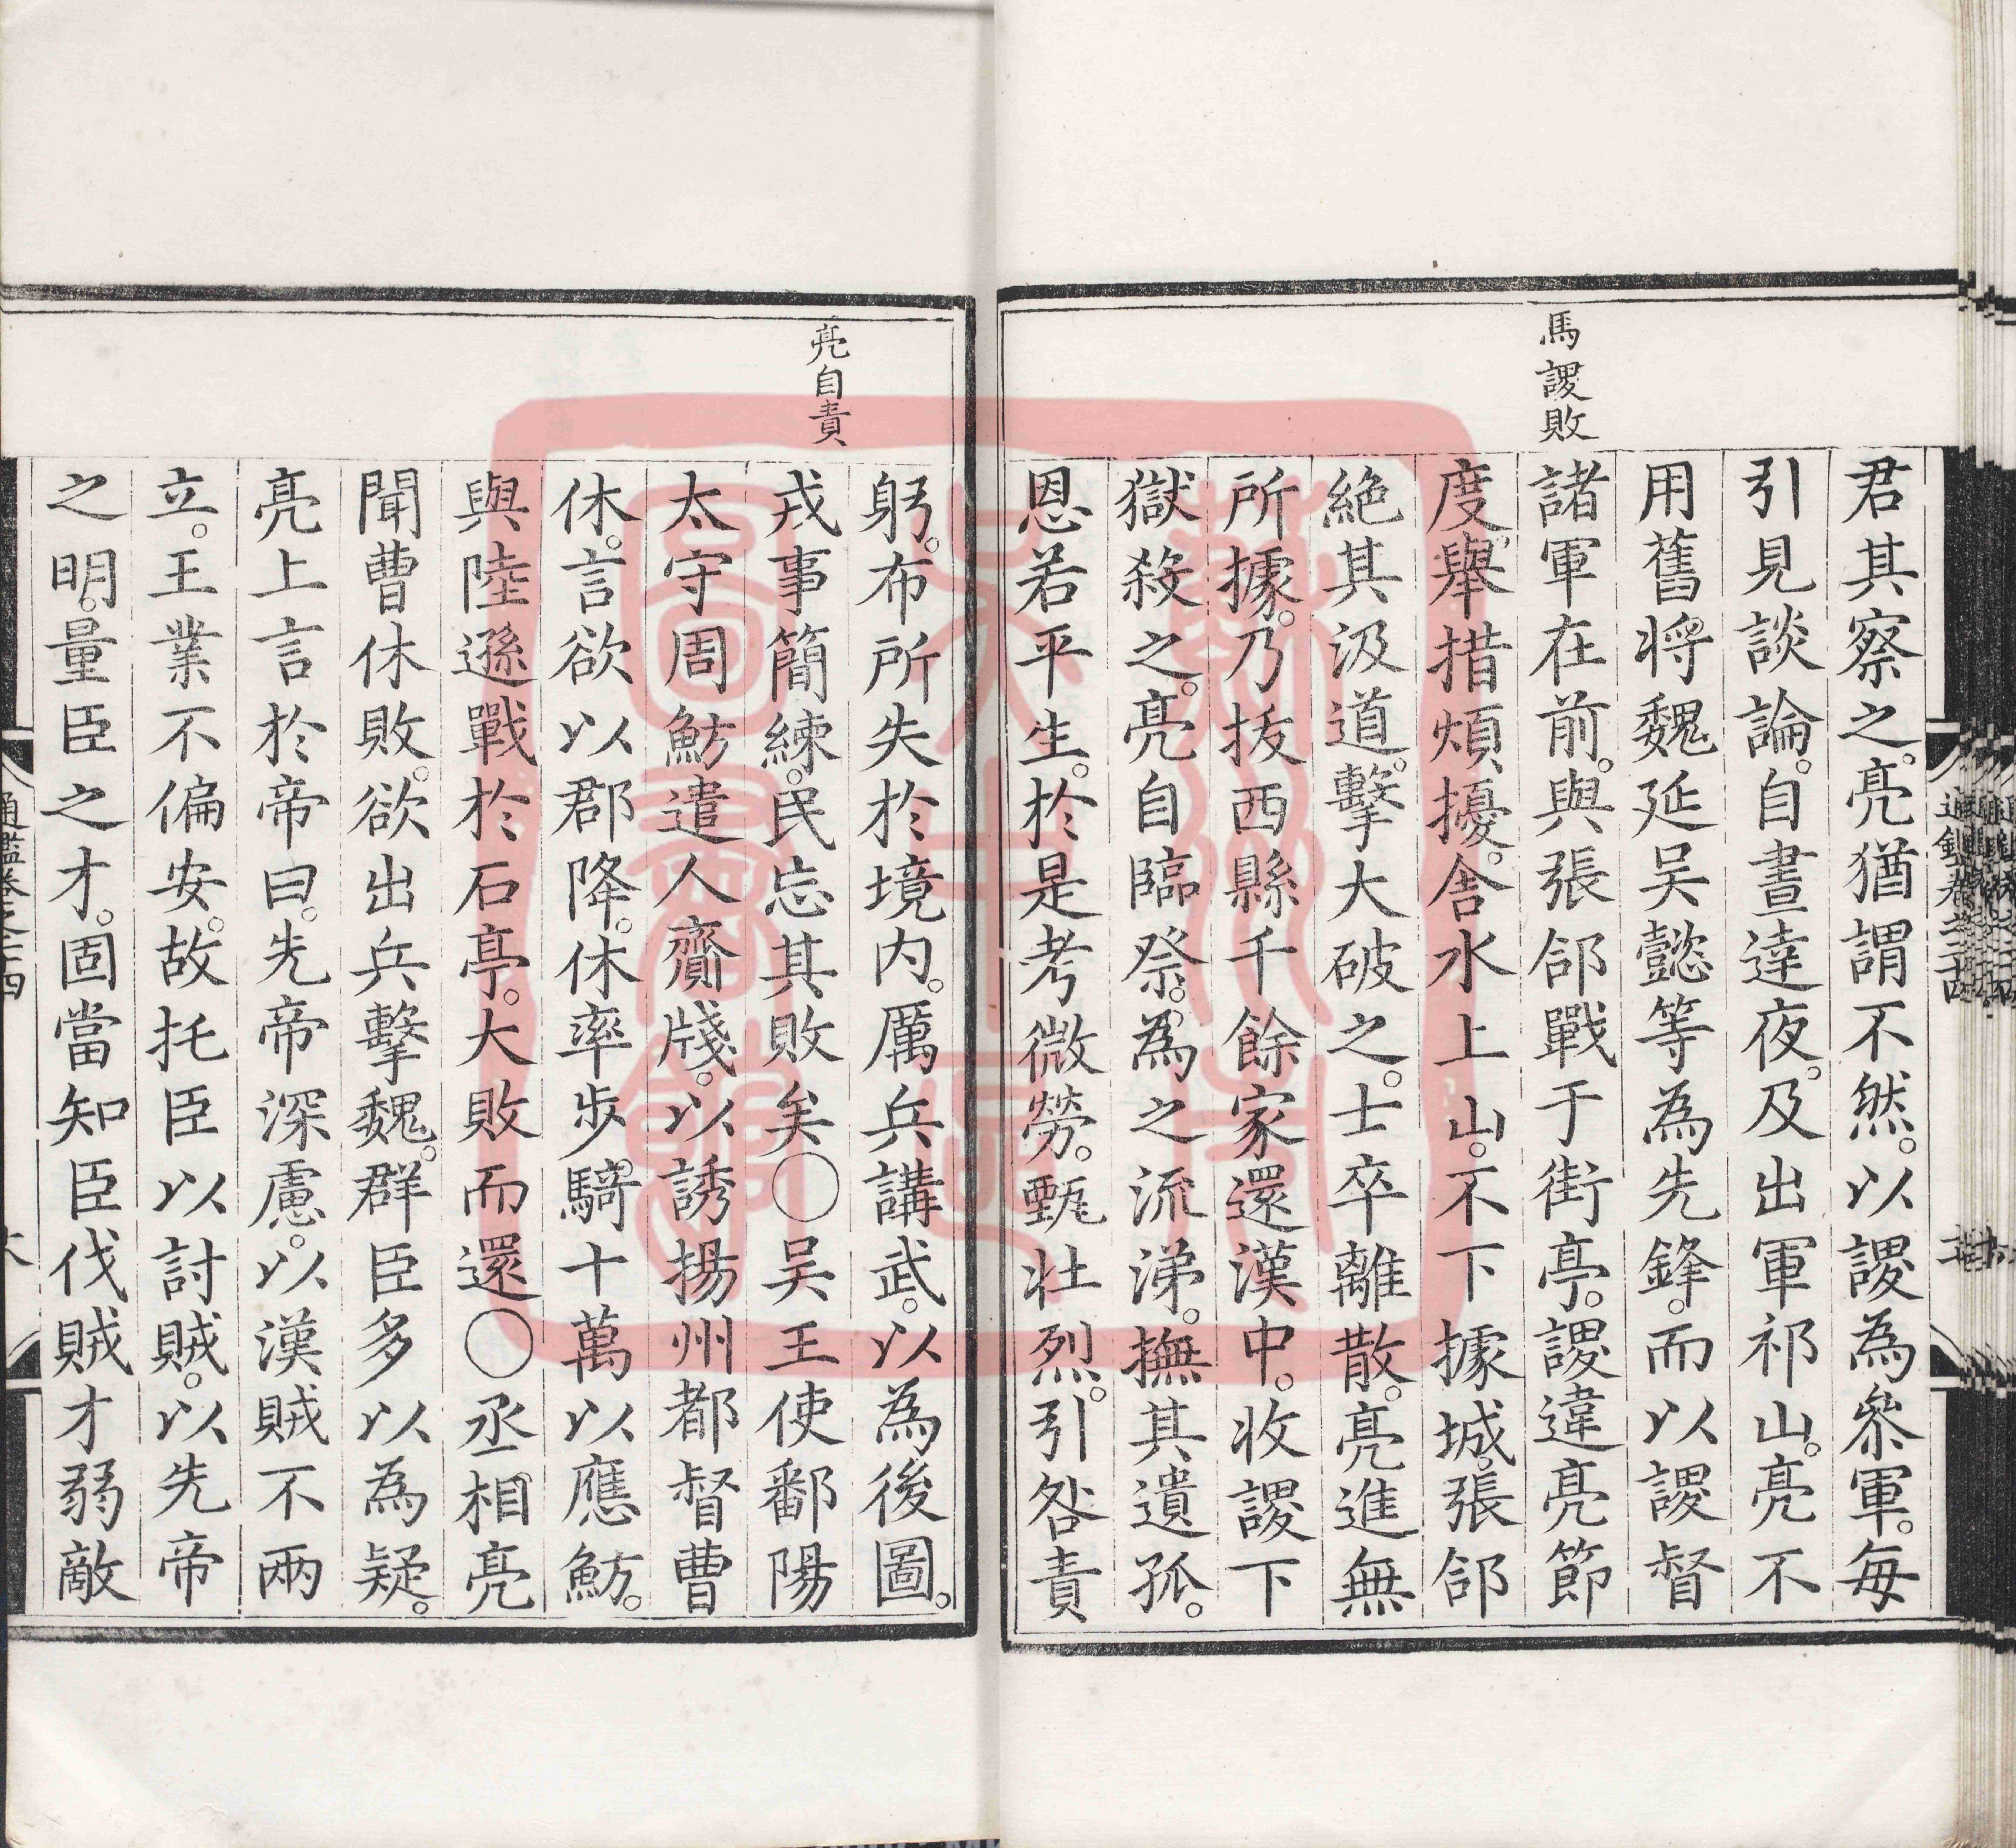 馬謖敗
君其察之。亮猶謂不然。以謖為叅軍。每
引見談論。自晝達夜。及出軍祁山。亮不
用舊將魏延吴懿等為先鋒。而以謖督
諸軍在前。與張郃戰于街亭。謖違亮節
度。舉措煩擾。舎水上山。不下據城。張郃
絶其汲道。擊大破之。士卒離散。亮進無
所據。乃拔西縣千餘家還漢中。收謖下
獄殺之。亮自臨祭。為之流涕。撫其遺孤。
恩若平生。於是考微勞。甄壯烈。引咎責
亮自責
躬。布所失於境内。厲兵講武。以為後圖。
戎事簡練。民忘其敗矣○吴王使鄱陽
太守周魴遣人齎牋。以誘揚州都督曹
休。言欲以郡降。休率步騎十萬以應魴。
與陸遜戰於石亭。大敗而還○丞相亮
聞曹休敗。欲出兵擊魏。群臣多以為疑。
亮上言於帝曰。先帝深慮。以漢賊不兩
立。王業不偏安。故托臣以討賊。以先帝
之明。量臣之才。固當知臣伐賊才弱敵